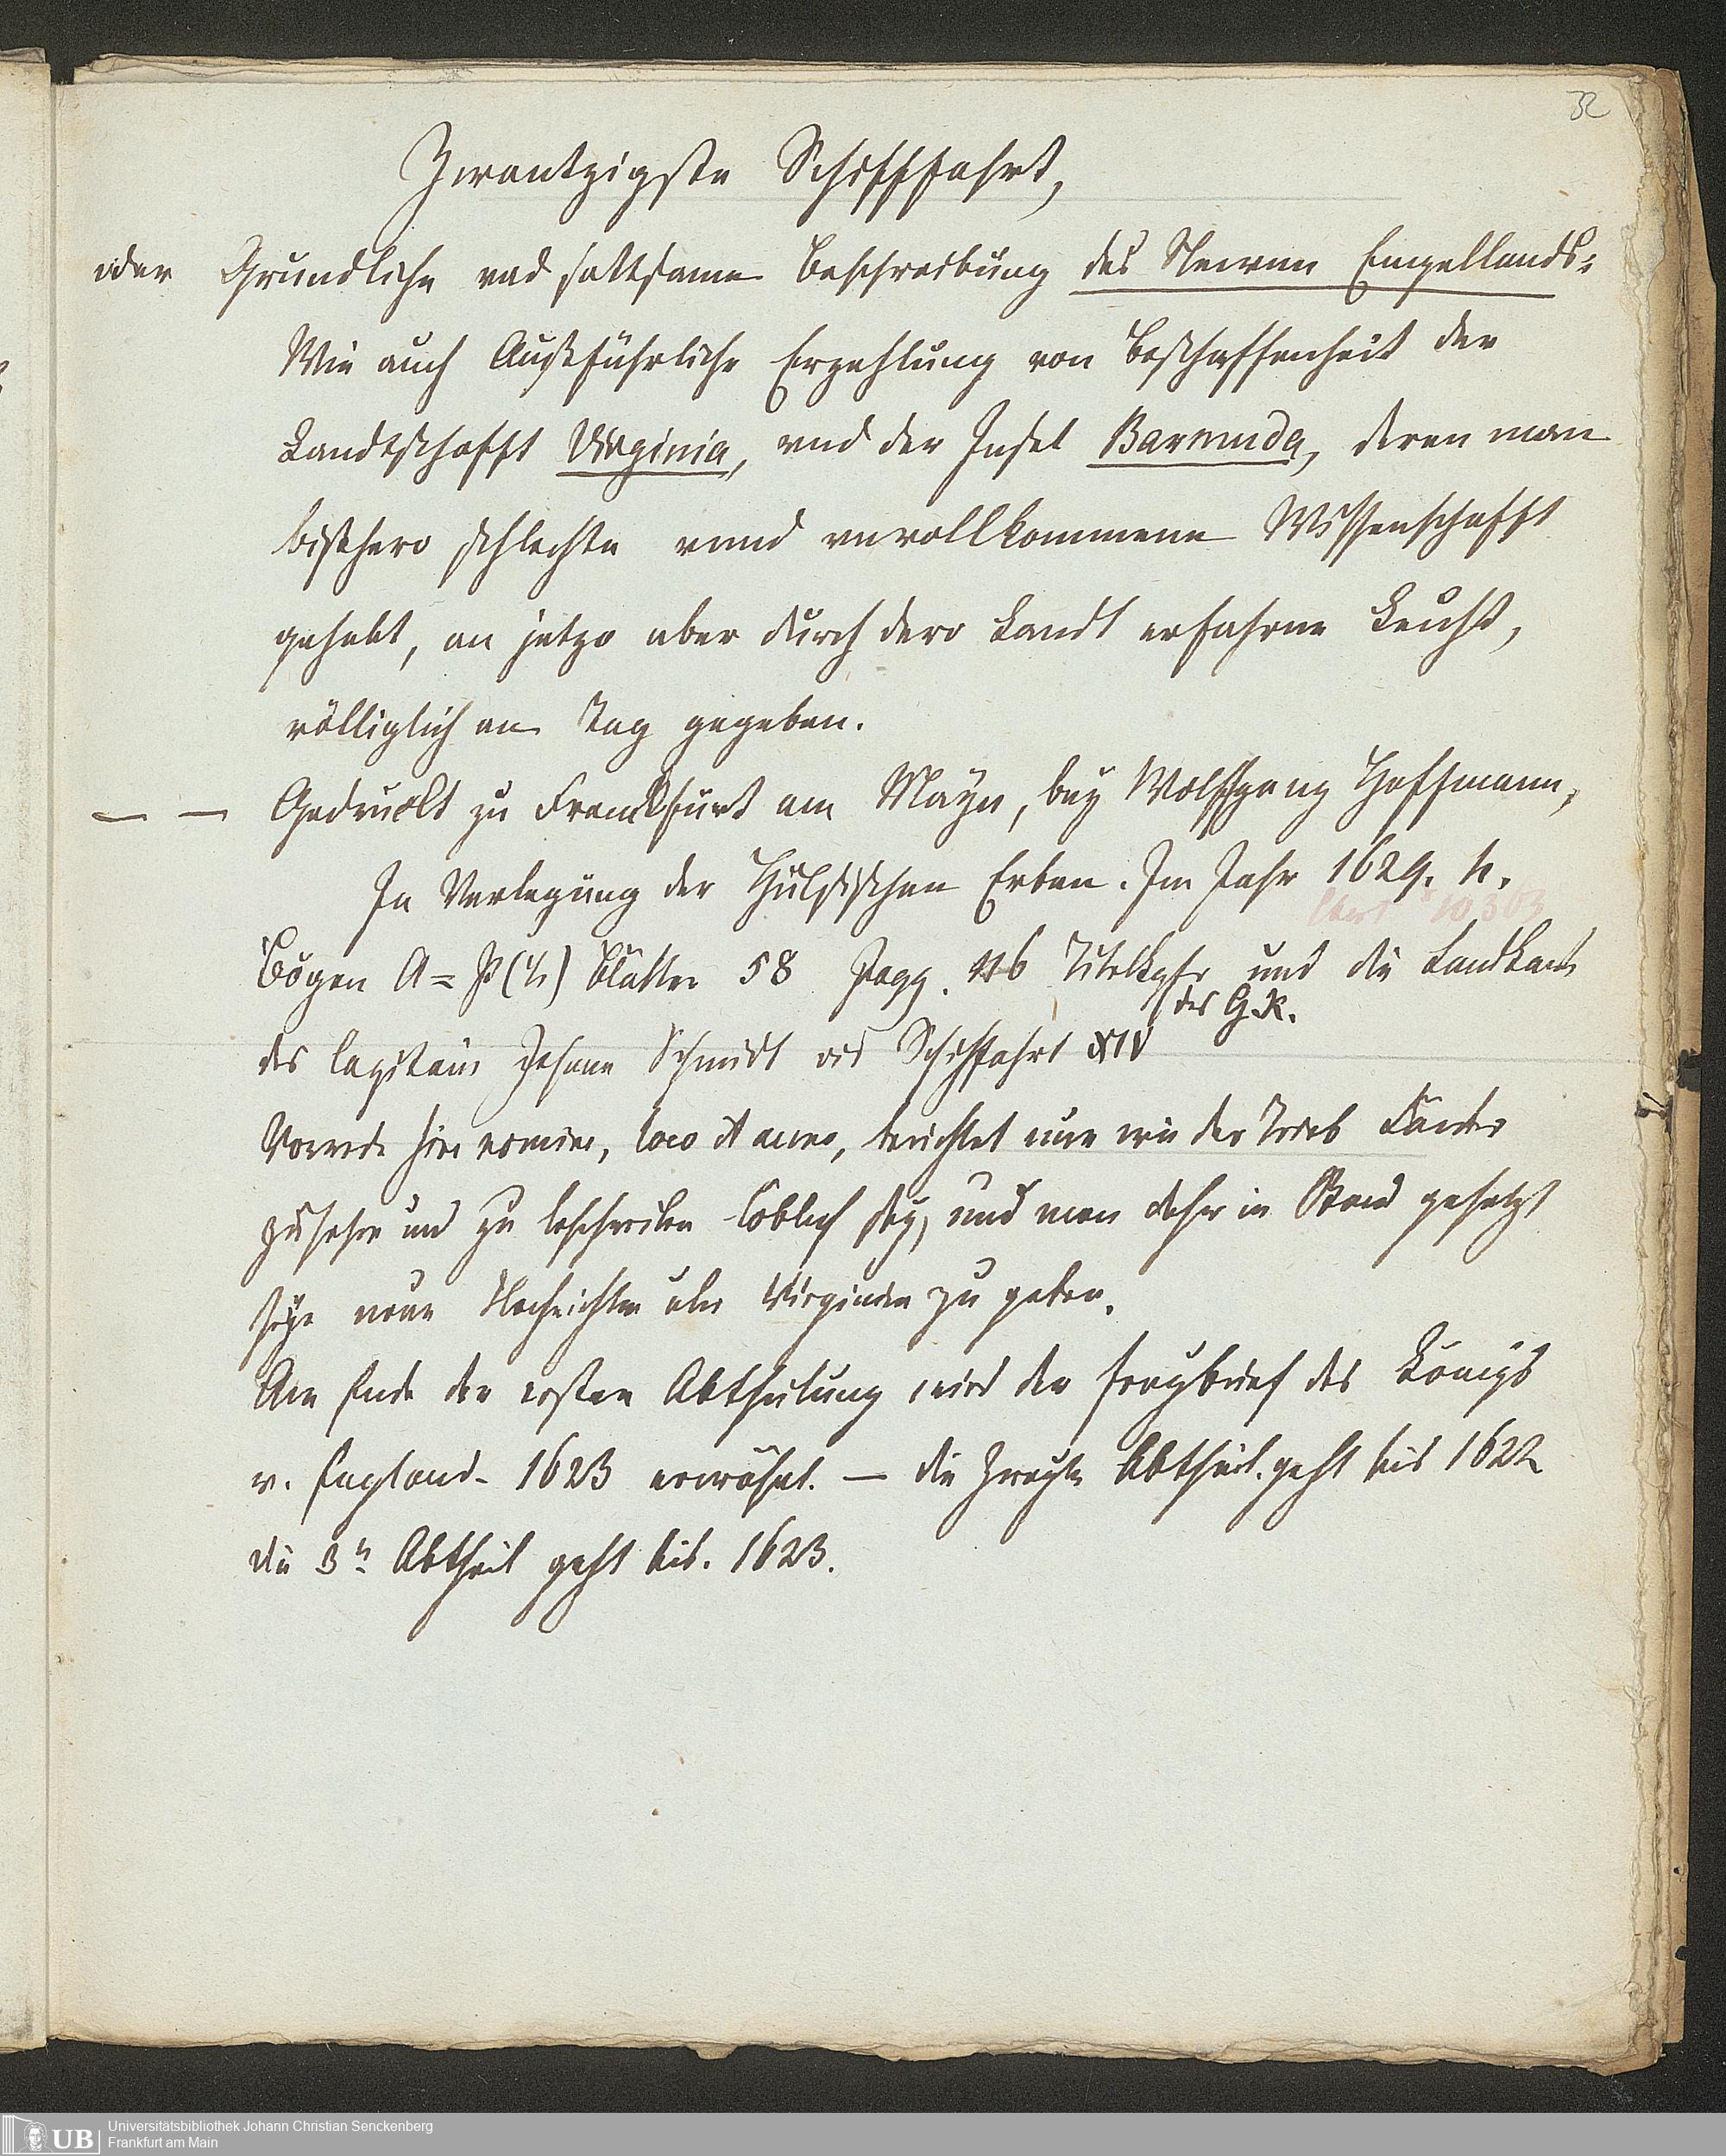 32
Zwantzigste Schifffahrt,
oder Gründliche vnd sattsame Beschreibung des Newen Engellands:
Wie auch Außführliche Erzehlung von Beschaffenheit der
Landtschafft Virginia, vnd der Insel Barmuda, deren man
bißhero schlechte vnnd vnvollkommene Wissenschafft
gehabt, an jetzo aber durch dero Landt erfahrne Leuhte,
völliglich an Tag gegeben.
— — Gedruckt zu Franckfurt am Mayn, bey Wolffgang Hoffmann,
In Verlegung der Hulsischen Erben. Im Jahr 1629. 4.
10363
Bögen A = P (4) Blätter 58 Pagg. 116 Titelkpfr und die Landkarte
des G.R.
des Capitain Johann Schmidt aus Schiffahrt XIV
Vorrede sine nomine, loco et anno, berichtet nur wie der Trieb Länder
zu sehen und zu beschreiben löblich sey, und man daher in Stand gesetzt
seye neue Nachrichten über Virginien zu geben.
Am Ende der ersten Abtheilung wird der Freybrief des Königs
v. England 1623 erwähnt. — die Zweyte Abtheil. geht bis 1622
die 3te Abtheil geht bis. 1623.
Universitätsbibliothek Johann Christian Senckenberg
UB
Frankfurt am Main